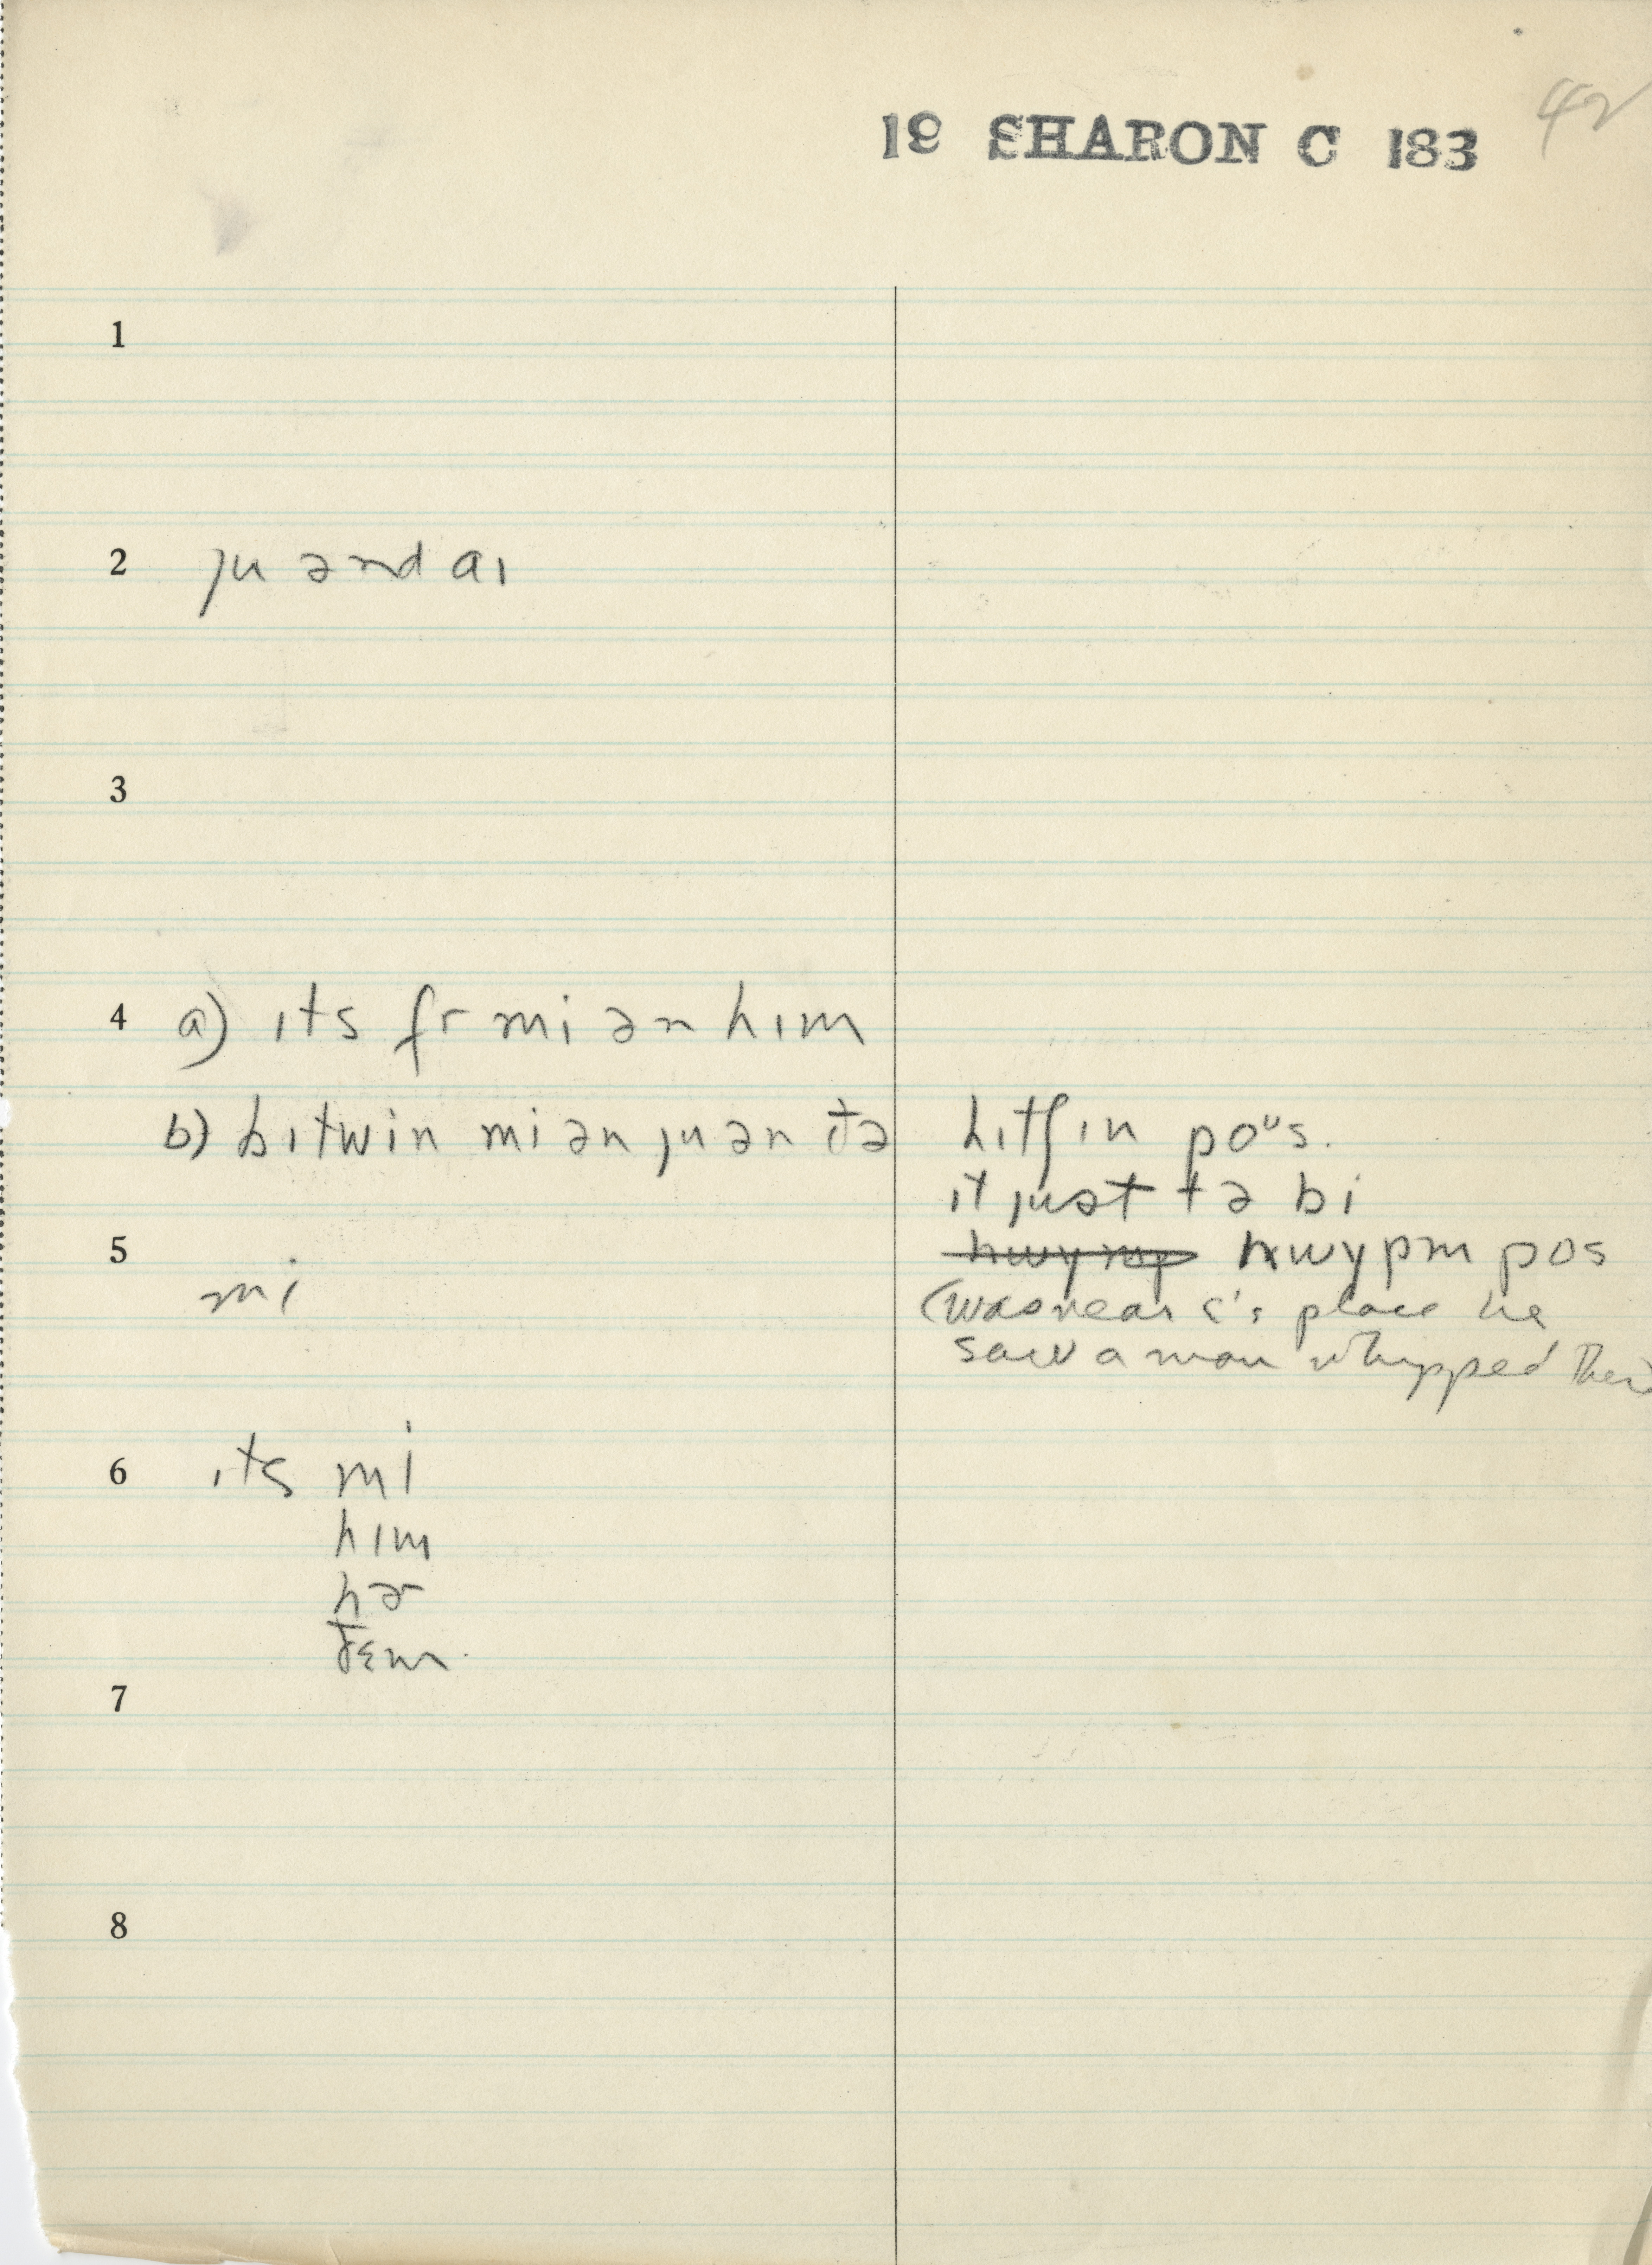 19 SHARON C 183
42
1
2 ju ənd aɪ
3
4 a) ɪts fr mi ən hɪm
b) bɪtwin mi ən ju ən ðə hɪtʃɪn poᵘs.
it just tə bi
5 hwɪpɪn pos
mi
(was near C's place he
saw a man whipped there
6 ɪts mi
hɪm
hɚ
ðɛm.
7
8